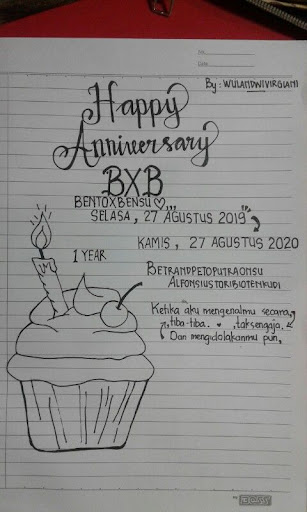 No.
Date.
By : WULANDWIVIRGIANI
Happy
Anniversary
BXB
BENTOXBENSU
SELASA, 27 AGUSTUS 2019
KAMIS, 27 AGUSTUS 2020
1 YEAR
BETRANDPETOPUTRAONSU
ALFONSIUSTORIBIOTENKUDI
Ketika aku mengenalmu secara
tiba-tiba.. , tak sengaja,
Dan mengidolakanmu pun,